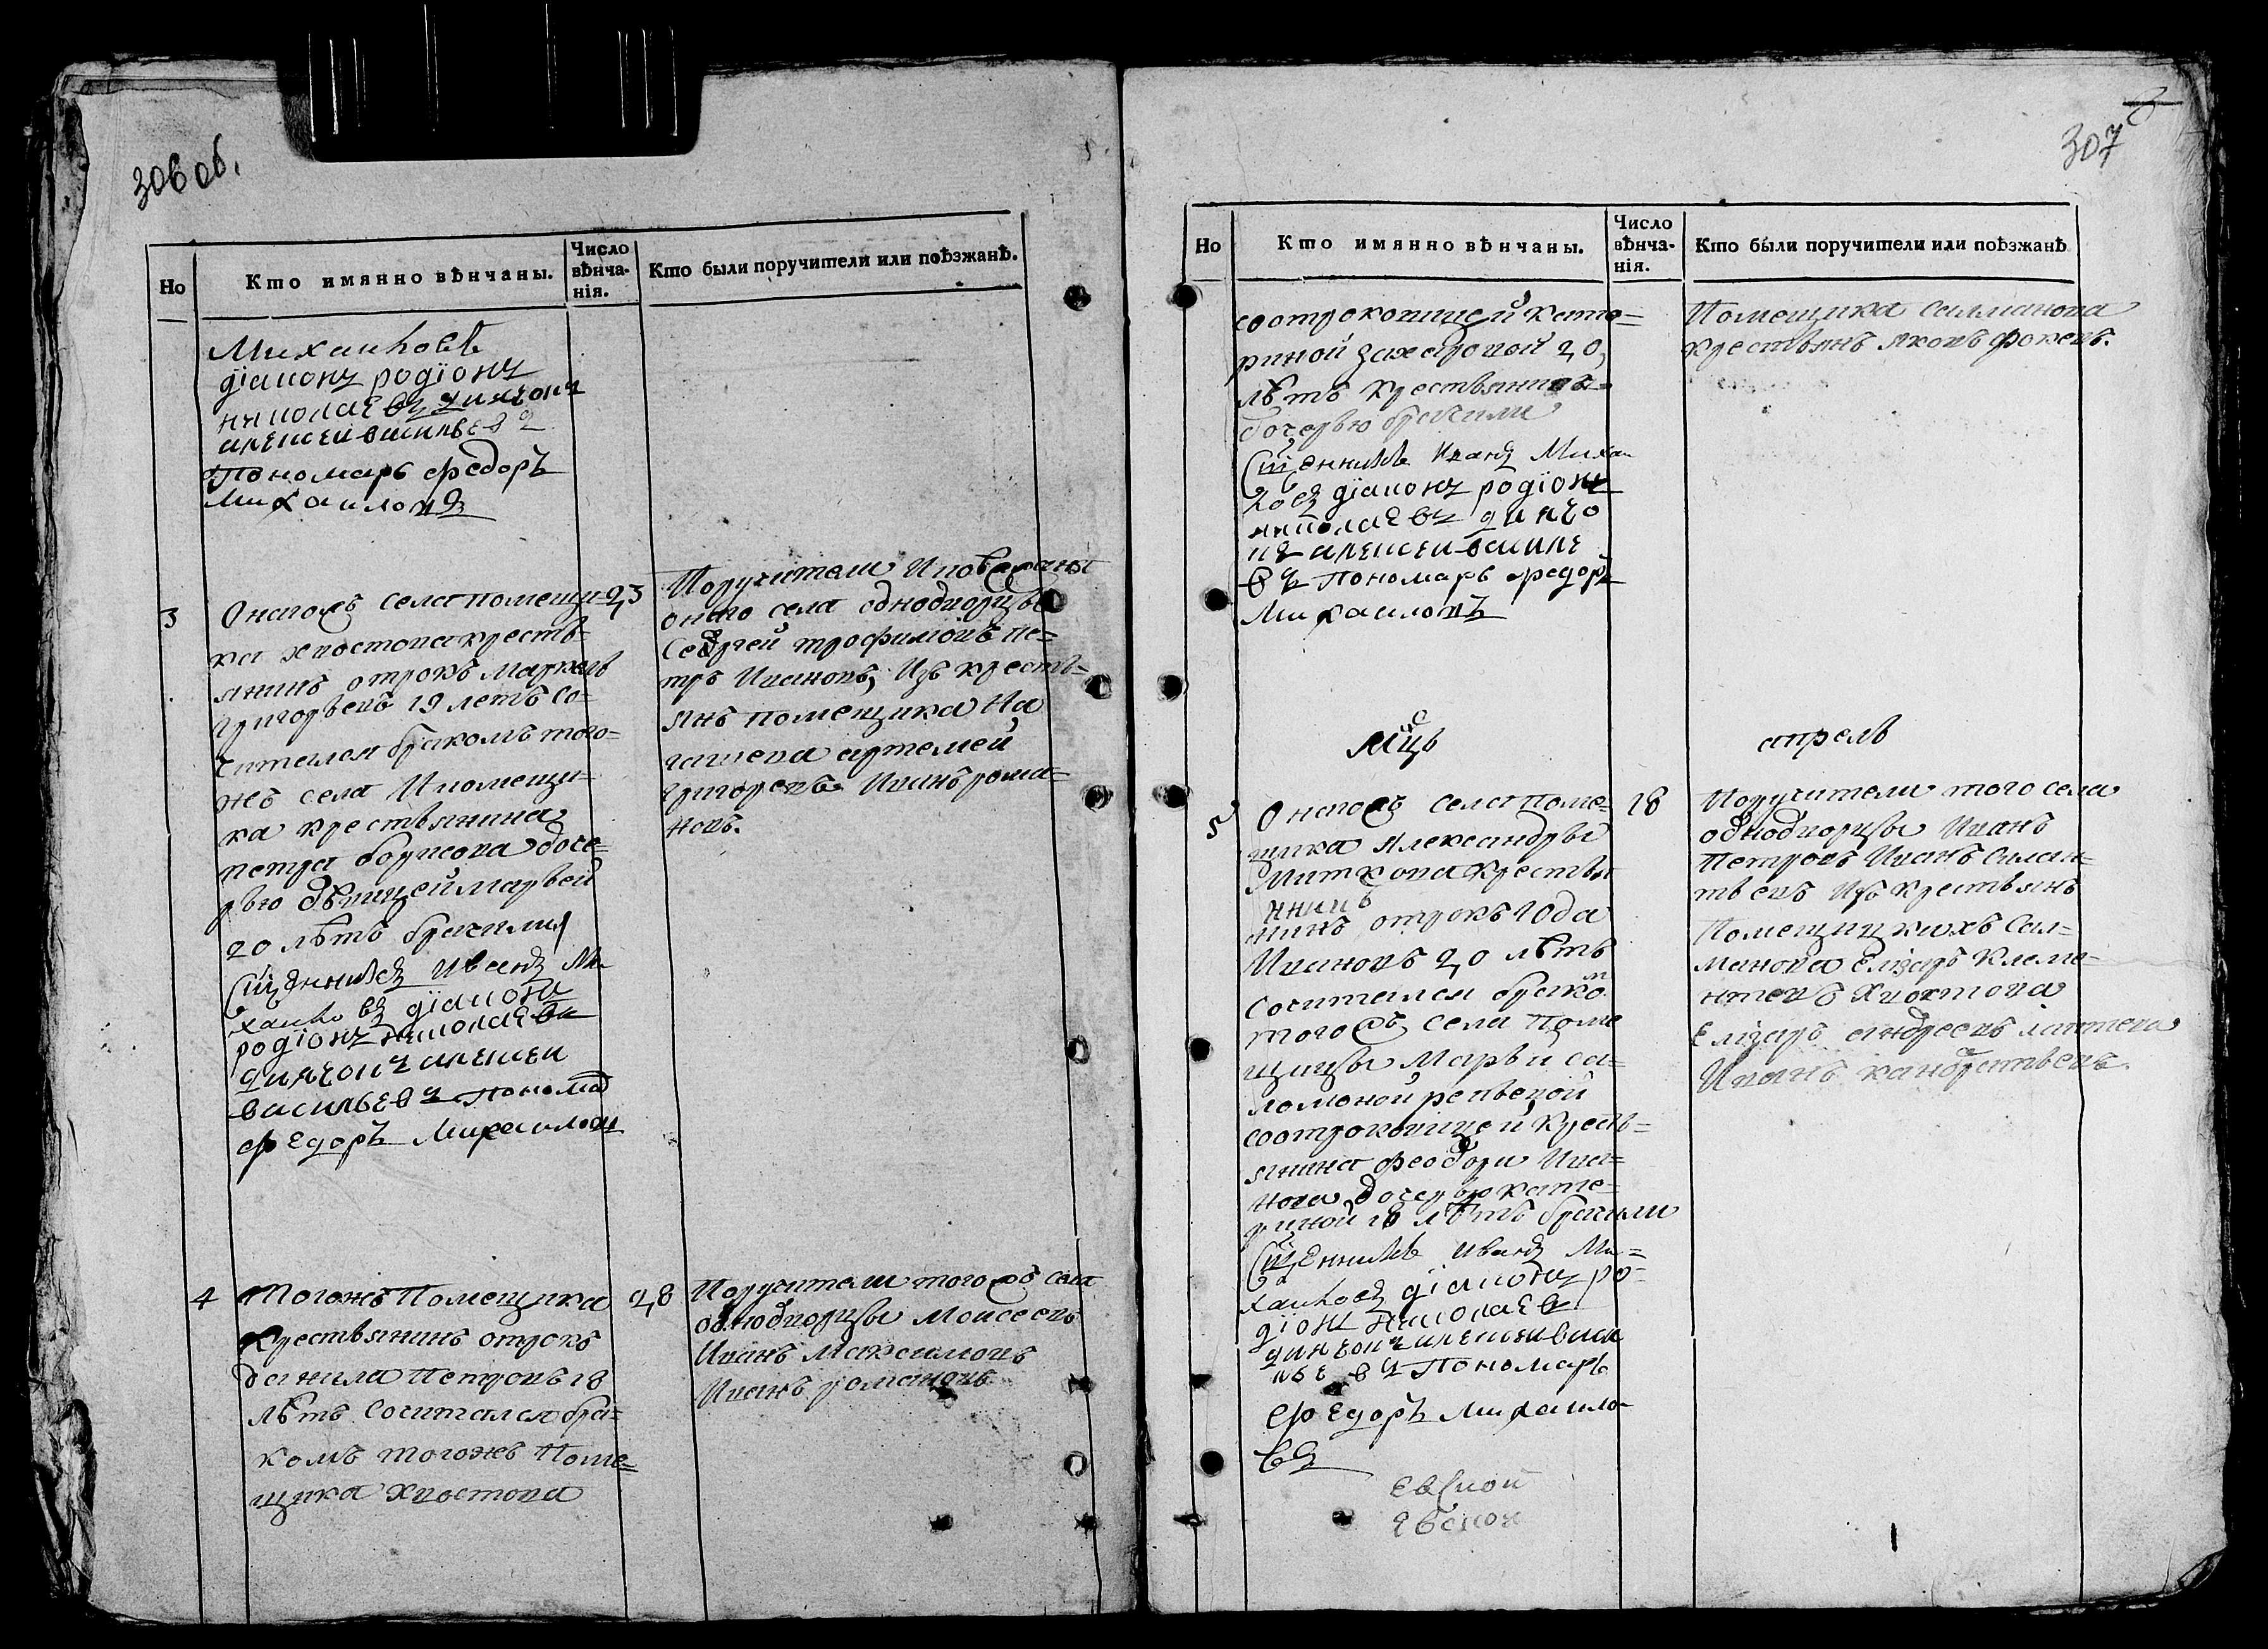 306 об.
Но
Кто имянно вѣнчаны.
Число вѣнча-нія.
Кто были поручители или поѣзжанѣ.
Михайловъ
діаконъ родіонъ
николаевъ диячокъ
алексей васильевъ
Пономарь Федоръ
Михаиловъ
3
Онагожъ села помещи=
ка хвостова кресть=
янинъ отрокъ Маркелъ
григорьевъ 19 летъ со=
читался бракомъ того=
жъ села И помещи=
ка крестьянина
петра борисова доче=
рью девицей марьей
20 лѣтъ брачили
Сщенникъ Иванъ Ми
хайловъ діаконъ
родіонъ николаевъ
диячокъ алексеи
васильевъ Пономарь
Федоръ Михаиловъ
23
Поручители И поезжаны
онаго села однодворцы
Сергей трофимовъ пе=
тръ Ивановъ, Изъ кресть=
янъ помещика На
гаева артемей
григоревъ Иванъ рома=
новъ.
4
Тогожъ Помещика
Крестьянинъ отрокъ
данила Петровъ 18
лѣтъ Сочитался бра=
комъ тогожъ Поме=
щика хвостова
28
Поручители тогожъ села
однодворцы Моисеевъ
Иванъ Максимовъ
Иванъ романовъ
307
Но
Кто имянно вѣнчаны.
Число вѣнча-нія.
Кто были поручители или поѣзжанѣ
соотроковицей кате=
риной захаровой 20,
лѣтъ крестьянина=
дочерью брачили
Сщенникъ Иванъ Михаи
ловъ діаконъ родіонъ
николаевъ диячо
къ алексеи василе
въ Пономарь Федоръ
Михаиловъ
Помещика Салманова
крестьянъ яковъ фокевъ.
Мцъ
апрель
5
Онагожъ села поме=
щика Александры
Миткова крестья
нинъ отрокъ
Ивановъ 20 лѣтъ
Сочитался бракомъ
тогожъ села поме
щицы Марьи са=
ломоной репьевой
соотроковицей кресть=
янина феодора Ива=
нова дочерью кате=
риной 18 лѣтъ брачили
Сщенникъ Иванъ Ми=
хайловъ діаконъ ро=
діонъ николаевъ
диячокъ алексеи васи
льевъ Пономарь
Федоръ Михаило
въ
18
Поручители того села
однодворцы Иванъ
Петровъ Иванъ Силан=
тьевъ Изъ крестьянъ
Помещицкихъ Сал=
манова Елизаръ клеме=
нтевъ хвостова
Елизаръ андреевъ лаптева
Иванъ кандратьевъ.